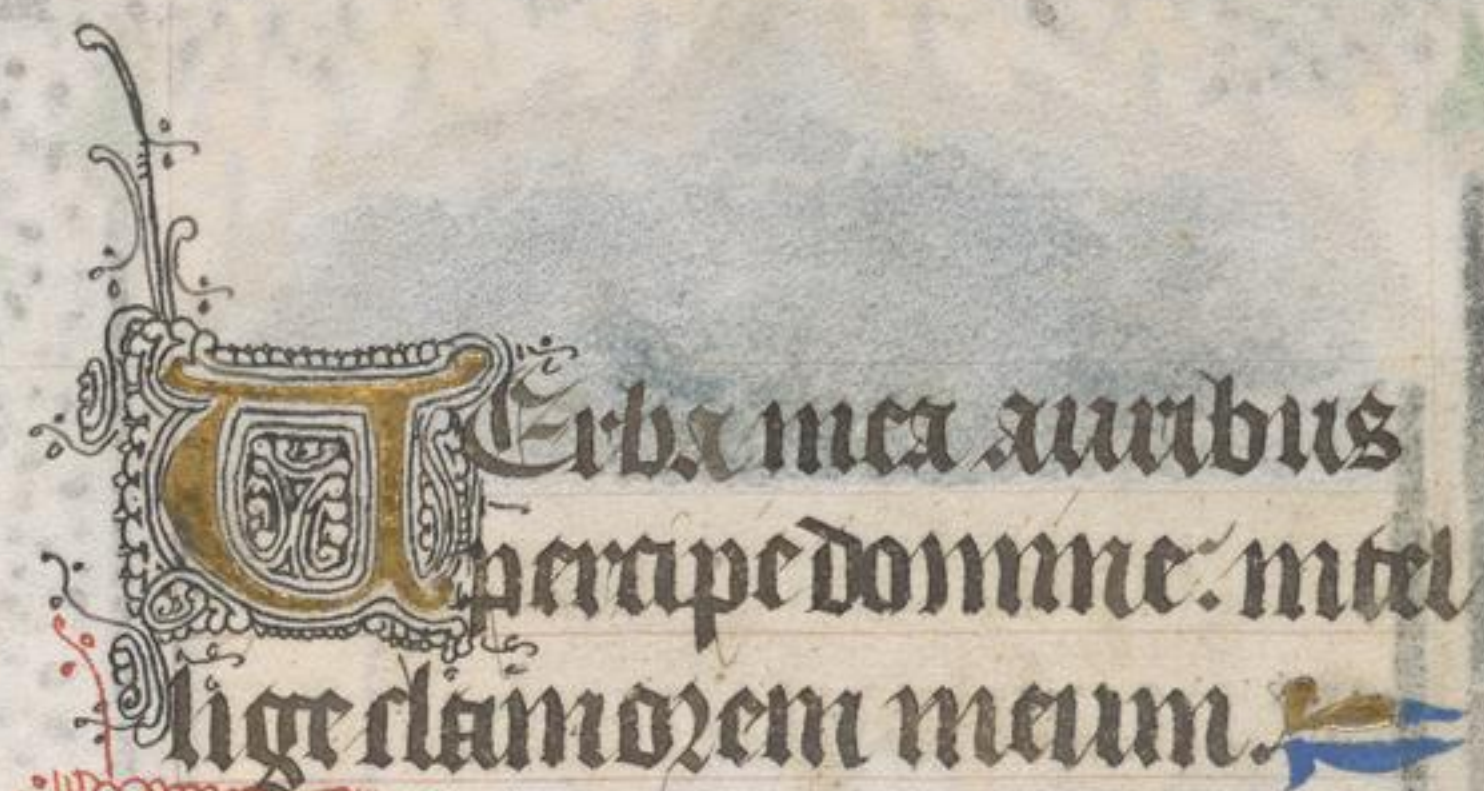 VErba mea auribus
percipe domine: intel
lige clamorem meum.